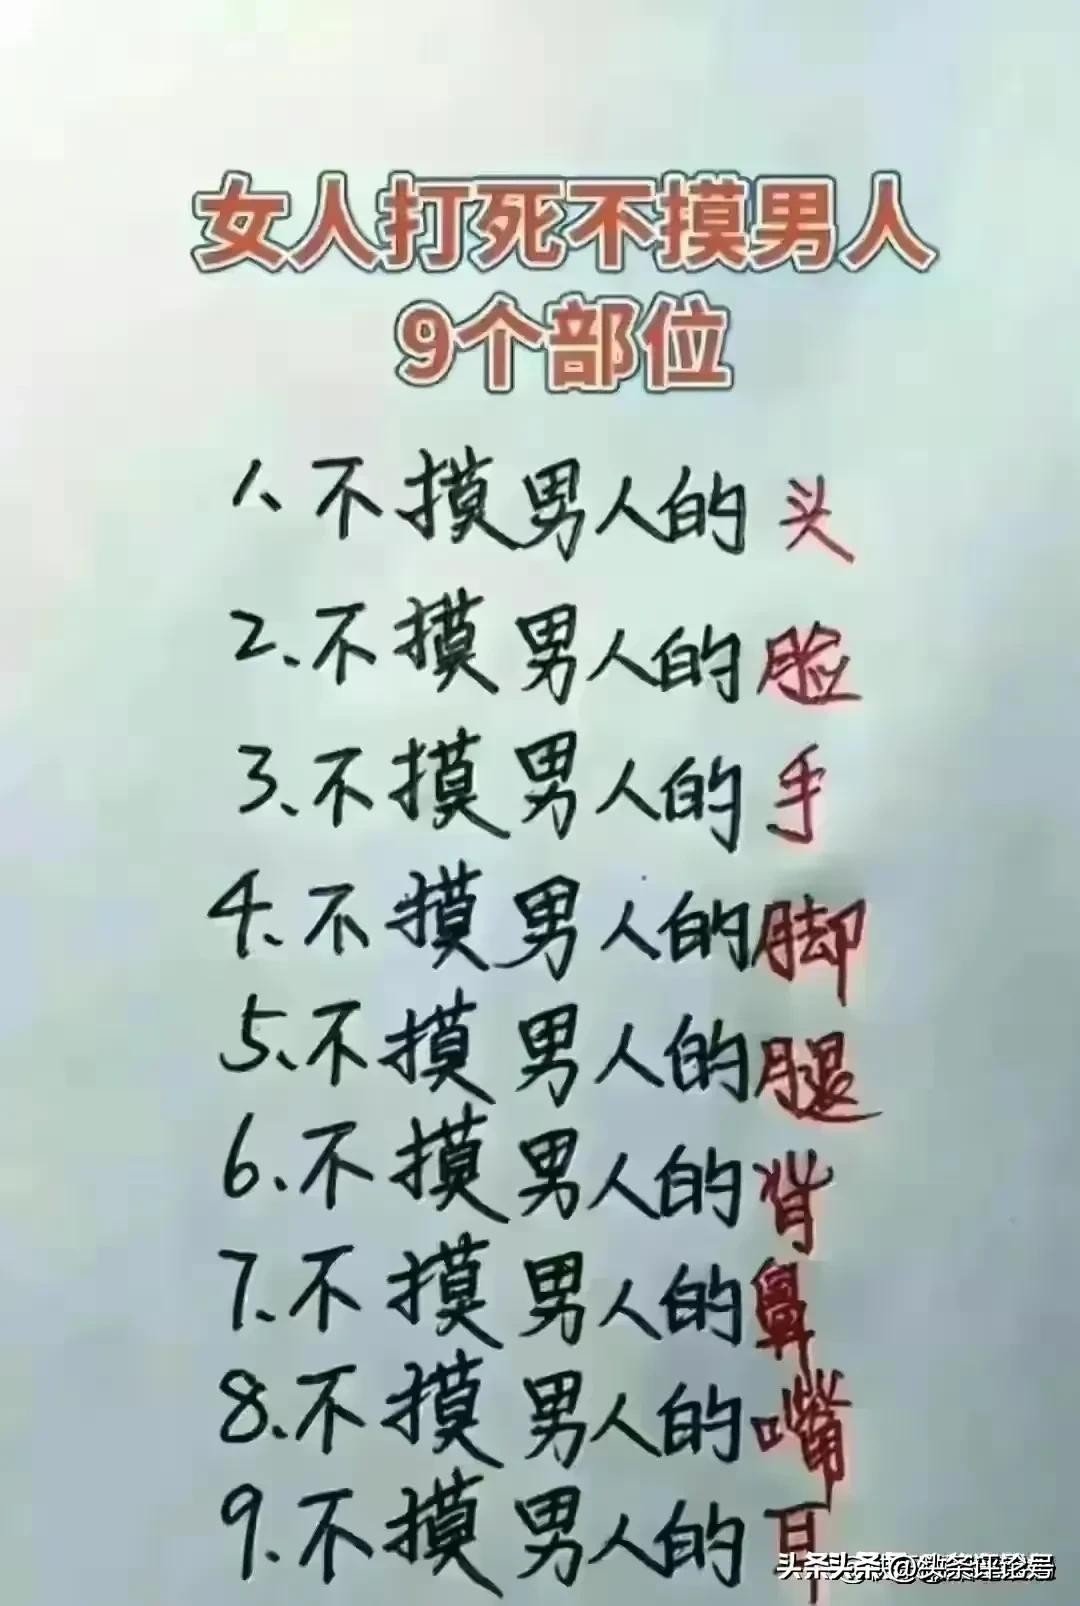 女人打死不摸男人
9个部位
1、不摸男人的头
2、不摸男人的脸
3、不摸男人的手
4、不摸男人的脚
5、不摸男人的腿
6、不摸男人的背
7、不摸男人的鼻
8、不摸男人的嘴
9、不摸男人的耳
头条 @头条评论号